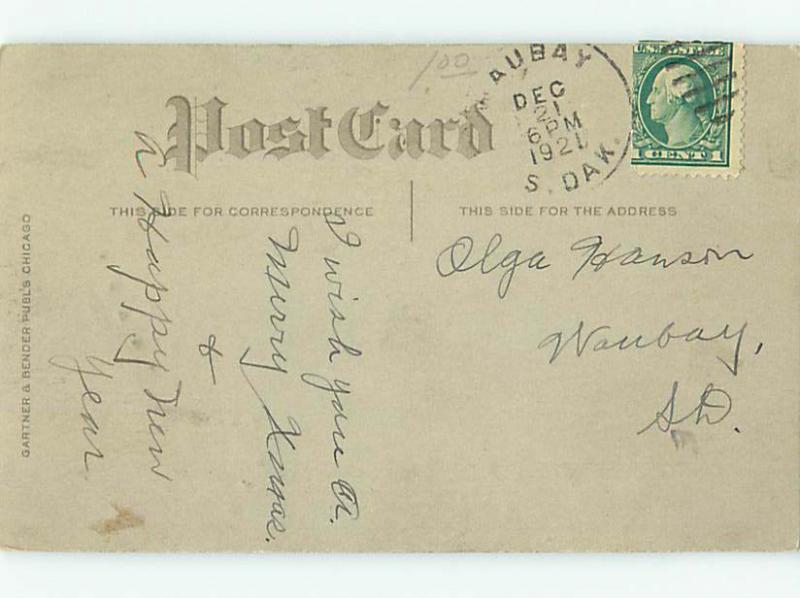 1.00
AUBAY
DEC
1
6 PM
1921
S. DAK.
U.S. POSTAGE
1 CENT 1
Post Card
THIS SIDE FOR CORRESPONDENCE
THIS SIDE FOR THE ADDRESS
GARTNER & BENDER PUBL'S CHICAGO
I wish you a
Merry Xmas.
&
a Happy New
Year
Olga Hanson
Waubay,
S.D.